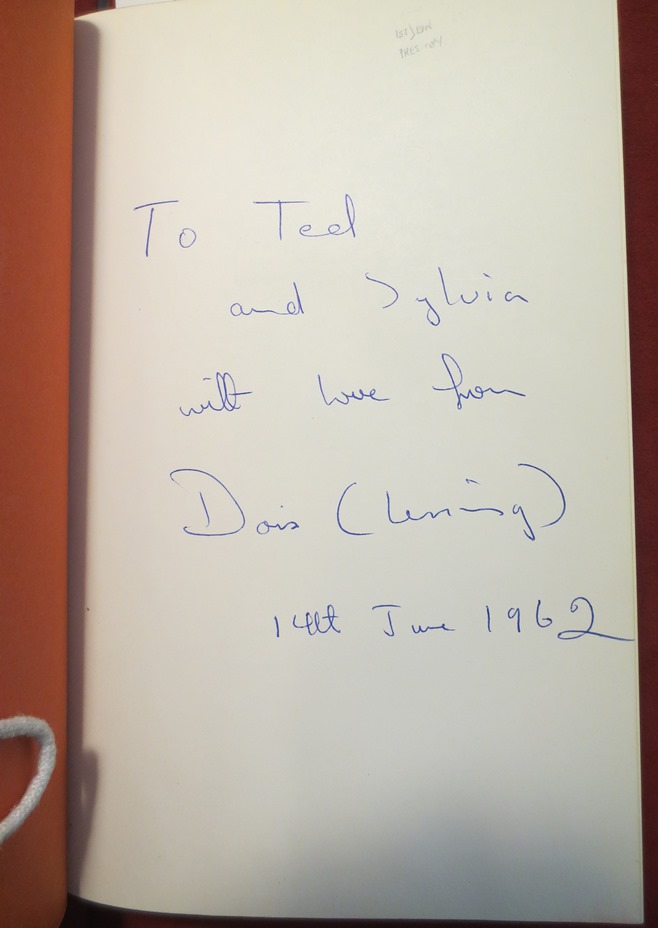 To Ted
and Sylvia
with love from
Doris (Lessing)
14th June 1962